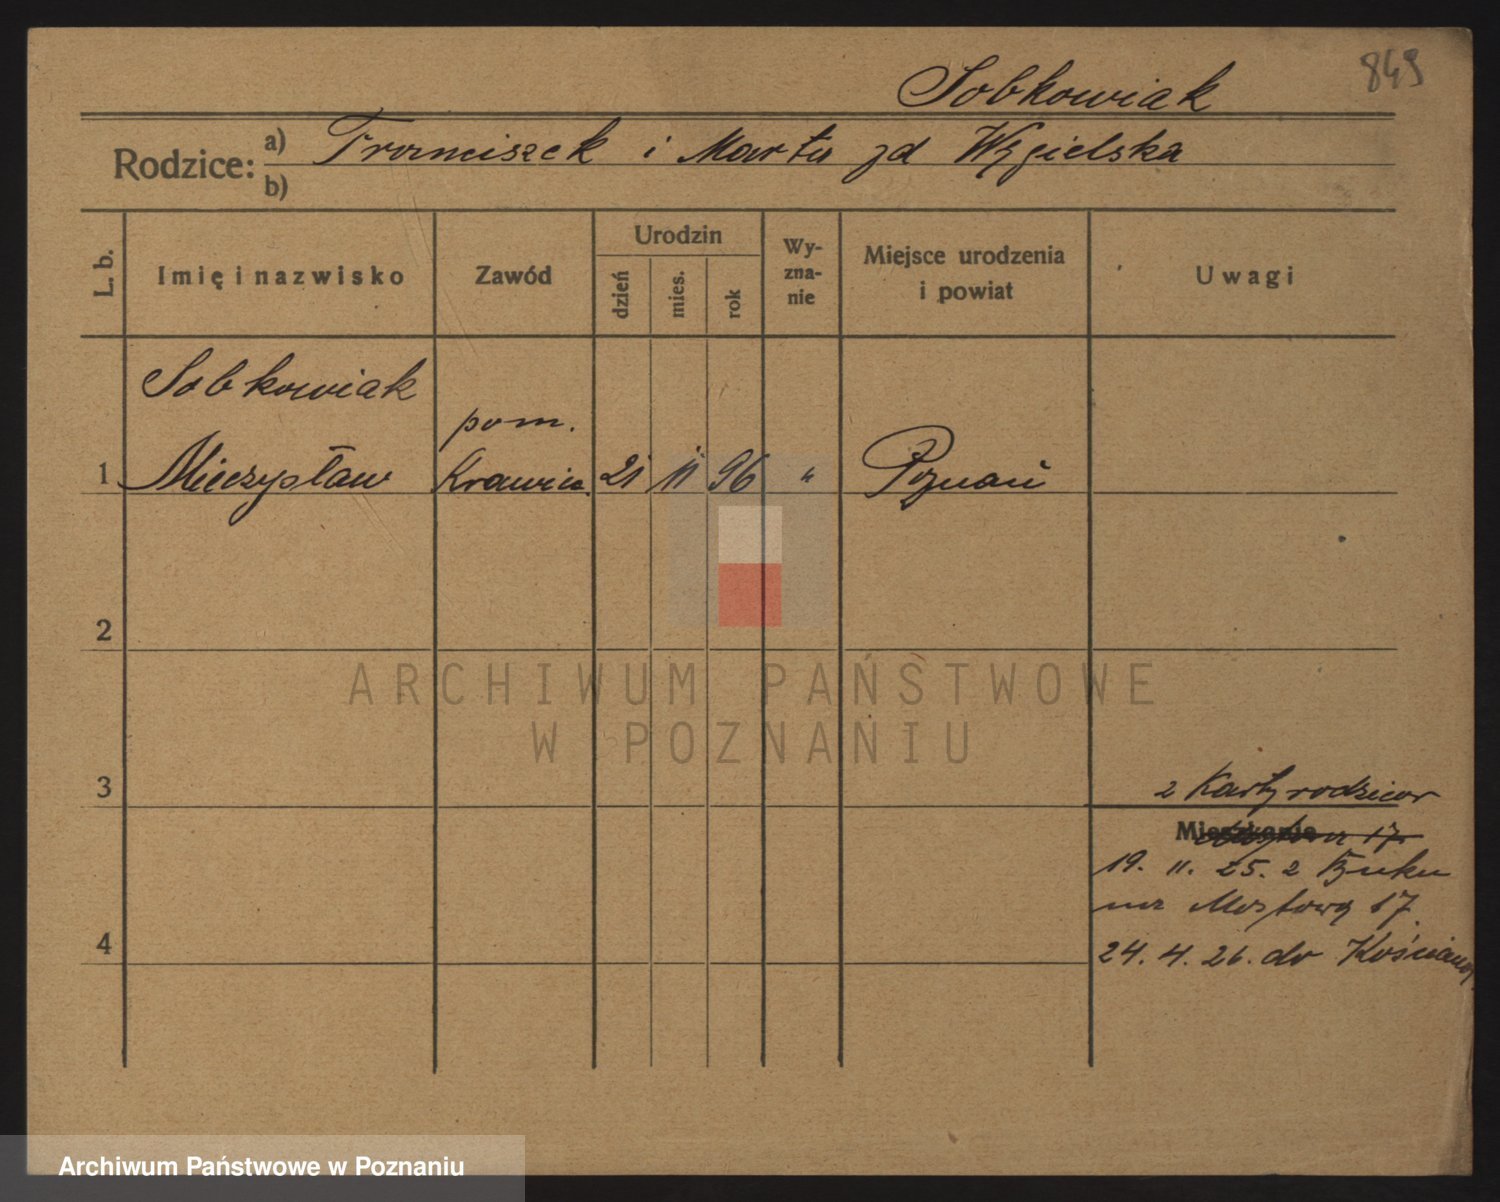 849
Sobkowiak
Rodzice: a) Franciszek i Marta zd Węgielska
b)
L. b.
Imię i nazwisko
Zawód
Urodzin
dzień
mies.
rok
Wy-
zna-
nie
Miejsce urodzenia
i powiat
Uwagi
Sobkowiak
pom.
1 Mieczysław Krawiec. 21 11 96 " Poznań
2
ARCHIWUM PAŃSTWOWE
W POZNANIU
3
z Karty rodziców
Mieszkanie
17.
19. 11. 25. z Buku
na Mostową 17.
4
24. 4. 26. do Kościana
Archiwum Państwowe w Poznaniu